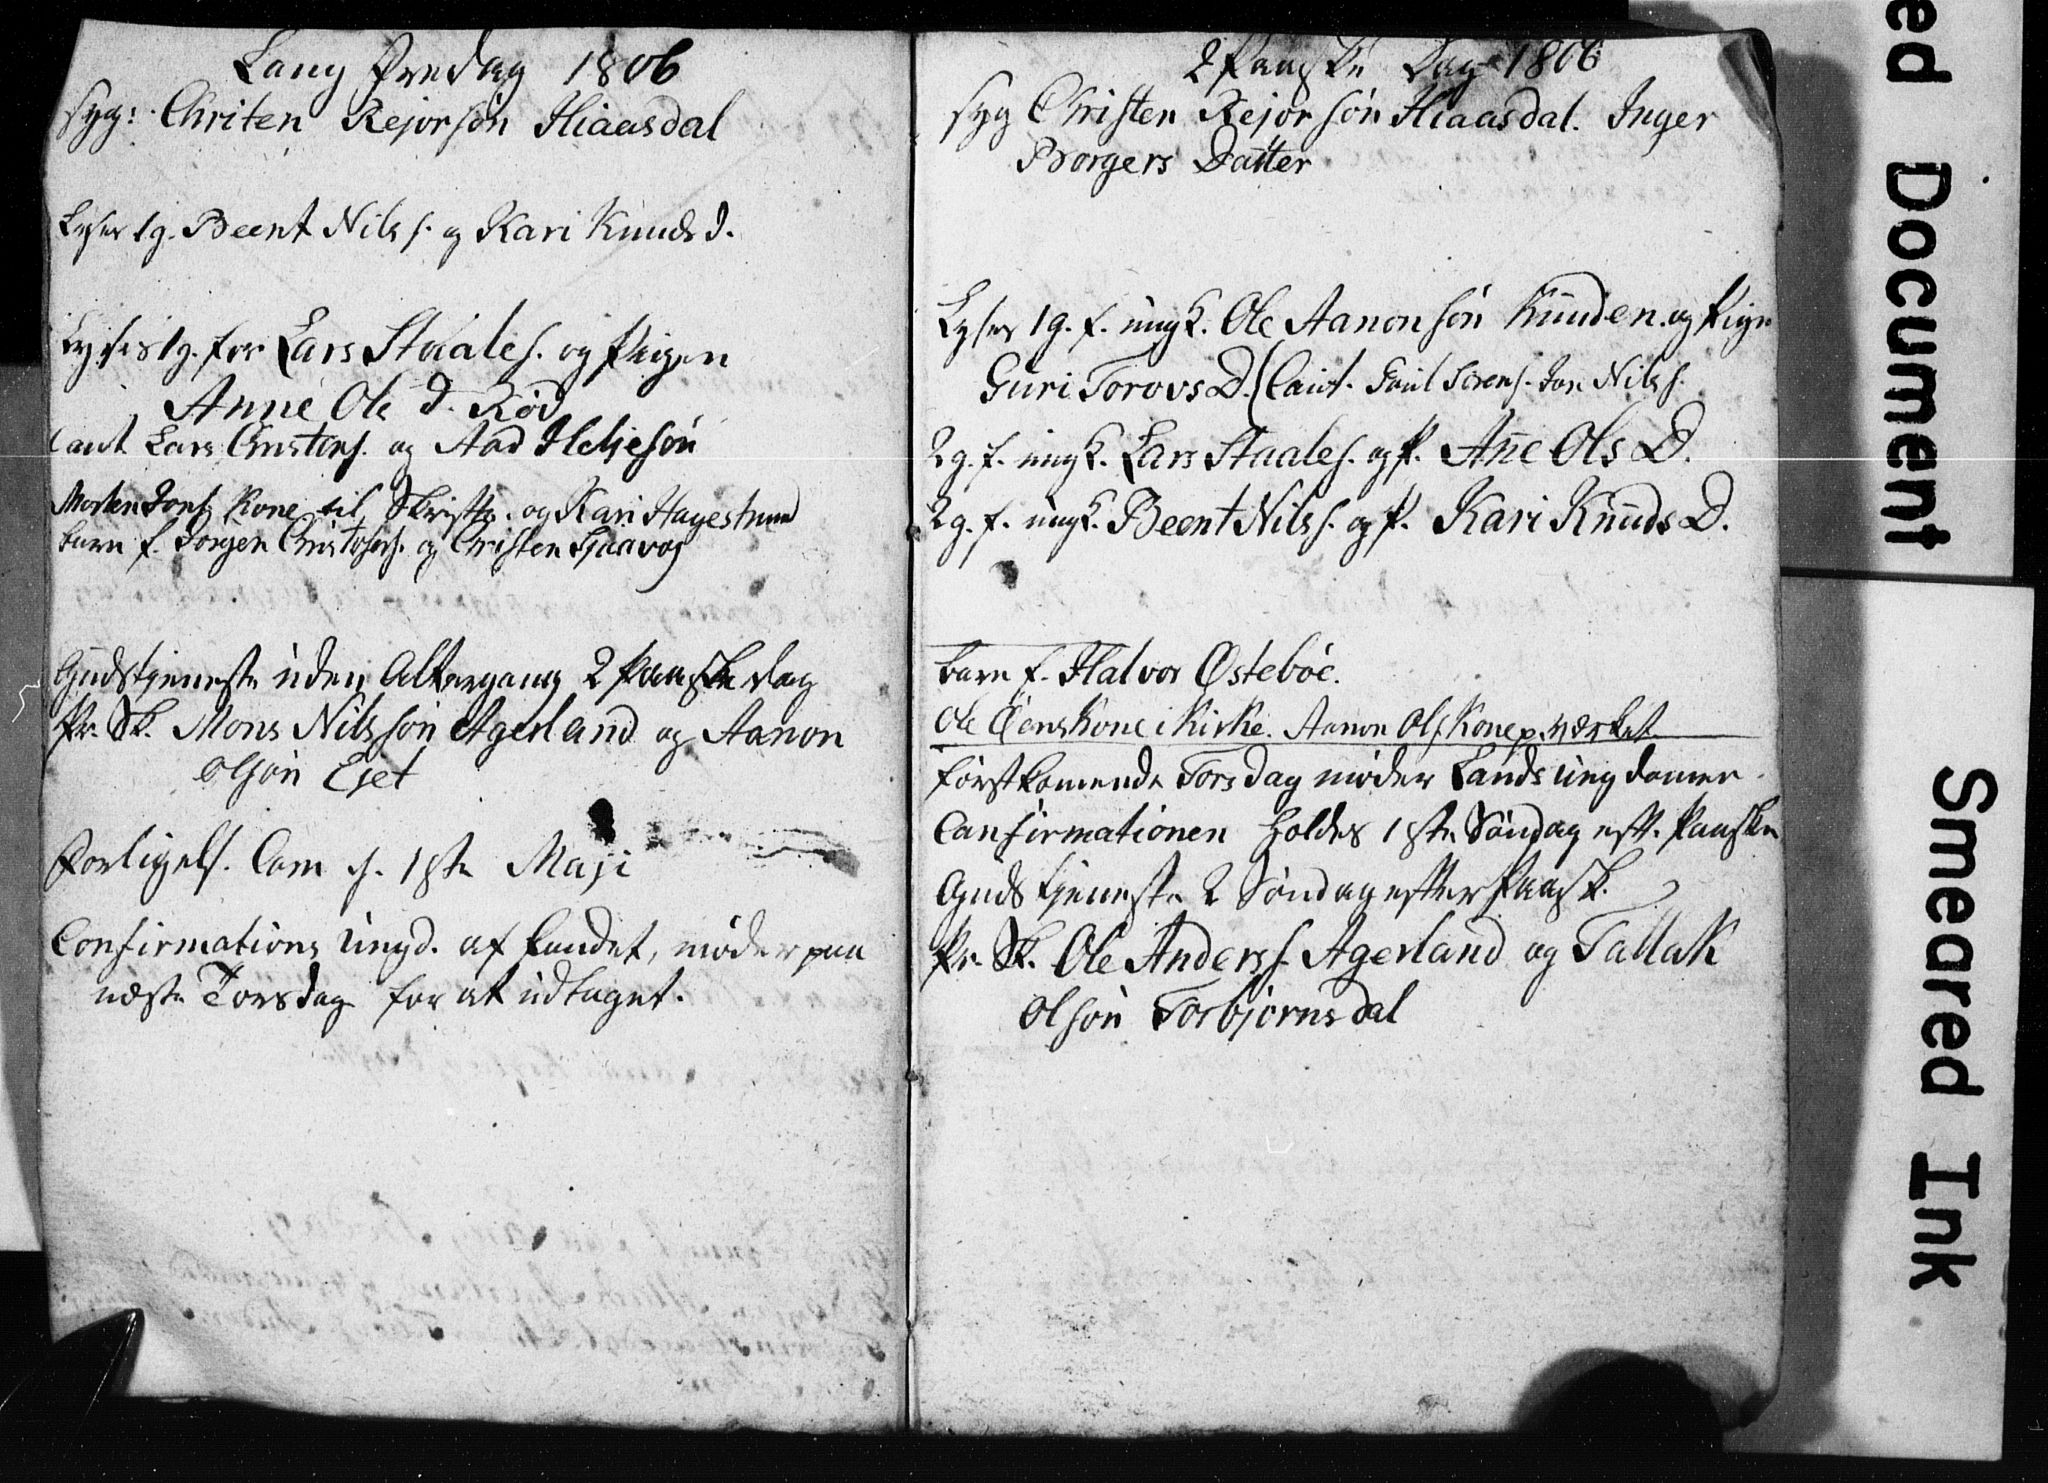 Lang Fredag 1806
syg: Chriten Rejorsön Hiaasdal
Lyses 1g. Beent Nils s. og Kari Knuds d.
Lyses 1g. for Lars Staales. og Pigen
Anne Ole d. Röd
Caut Lars Christens. og Aad Heljesön
Morten Jons Kone til Skrifte. og Kari Hagestrand
barn f. Jörgen Christophers. og Christen Sjaavog
Gudstjeneste uden Altergang 2 Paaske dag
Pr. Sk. Mons Nilssön Agerland og Aanon
Olsön Eset
Forligels. Com s. 1ste Maji
Confirmations Ungd. af Landet, møder paa
næste Torsdag for at udtaget.
2 Paaske Dag 1806
syg Christen Rejorsön Hiaasdal. Inger
Borgers Datter
Lyses 1g. f. ungk. Ole Aanonsön Knuden. og Pige
Guri Torovs D. (Caut. Poul Sörens. Jon Nils s.
2g. f. ungk. Lars Staales. og P. Añe Ols D.
2g. f. ungk. Beent Nils s. og P. Kari Knuds D.
barn f. Halvor Østeböe.
Ole Øens Kone i Kirke. Aanon Ols Kone p. værket
förstkomende Torsdag møder Lands ungdomen
Confirmationen holdes 1ste Søndag eft. Paaske
Gudstjeneste 2 Søndag efter Paask.
Pr. Sk. Ole Anderss. Agerland og Tallak
Olsön Torbjörnsdal
ed Document
Smeared Ink